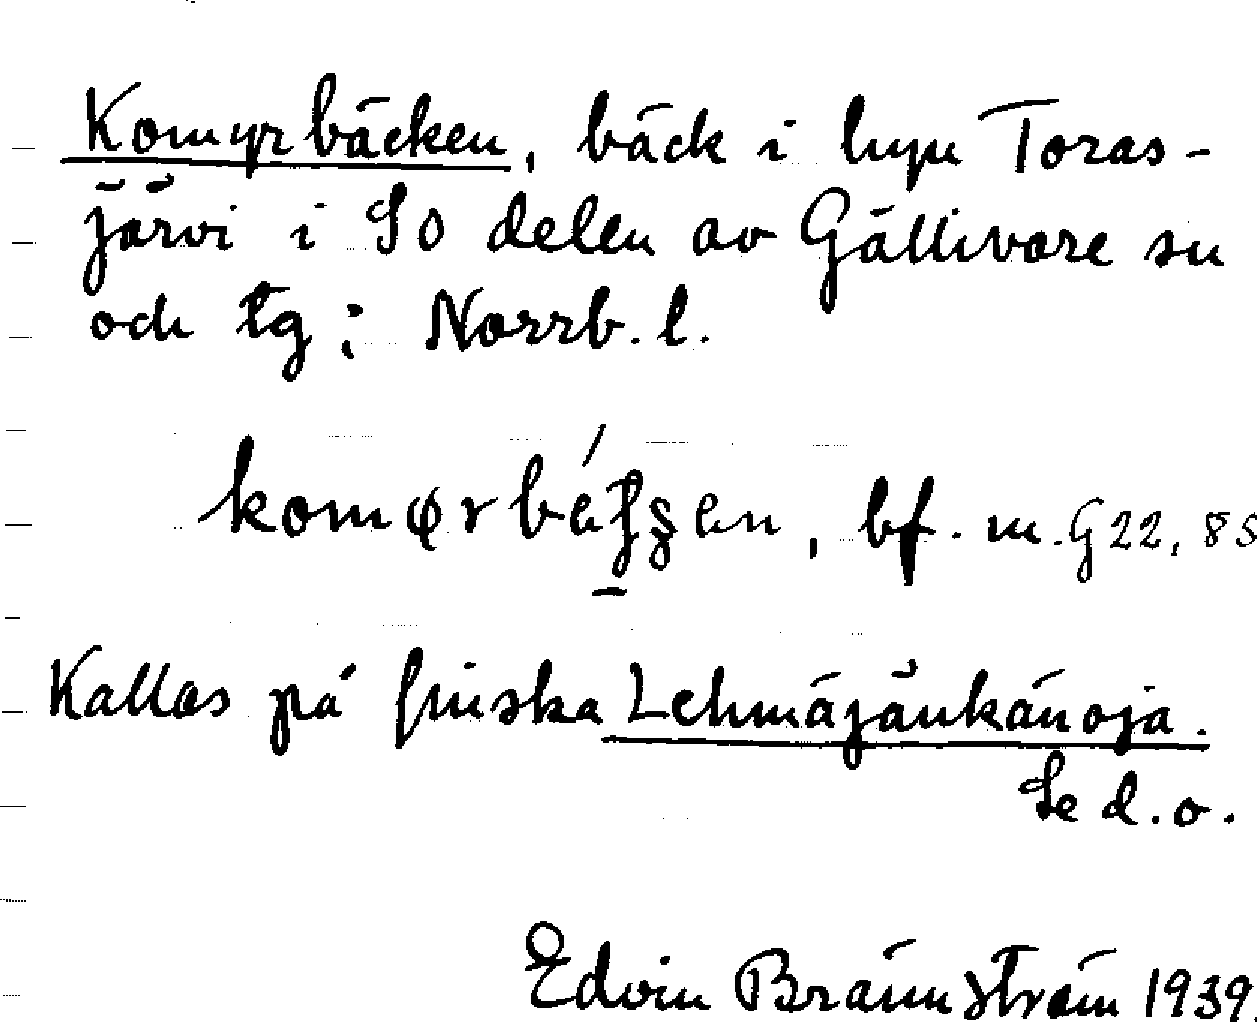 Komyrbäcken, bäck i byn Toras-
järvi i SO delen av Gällivare sn
och tg; Norrb. l.
bf. m. G 22, 85
Kallas på finska Lehmäjänkänoja.
Se d.o.
Edvin Brännström 1939.